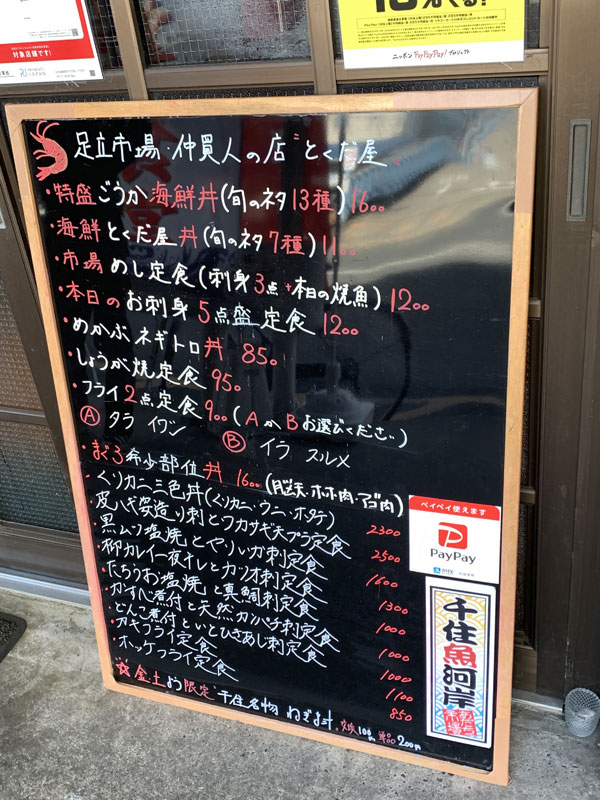 対象店舗です!
ニッポン PayPayPay! プロジェクト
足立市場・仲買人の店"とくだ屋"
・特盛ごうか海鮮丼(旬のネタ13種)1600
・海鮮とくだ屋丼(旬のネタ7種)1100
・市場めし定食(刺身3点+本日の焼魚)1200
・本日のお刺身5点盛定食1200
・めかぶネギトロ丼 850
・しょうが焼定食 950
・フライ2点定食900(AかBお選びください)
Ⓐ タラ イワシ Ⓑ イワ スルメ
・まぐろ希少部位丼 1600(脳天・ホホ肉・アゴ肉)
・ケガニ三色丼(ケガニ・ウニ・ホタテ) 2300
皮ハギ姿造り刺とワカサギ天プラ定食 2500
黒ムツ塩焼とやりいか刺定食 1600
柳カレイ一夜干しとカツオ刺定食 1300
たちうお塩焼と真鯛刺定食 1000
かすべ煮付と天然カンパチ刺定食 1000
どんこ煮付といとひきあじ刺定食 1000
カキフライ定食 1100
ホッケフライ定食 850
☆金土 限定 千住名物 ねぎま汁 定食100円 単品200円
ペイペイ使えます
PayPay
千住魚河岸
足立市場